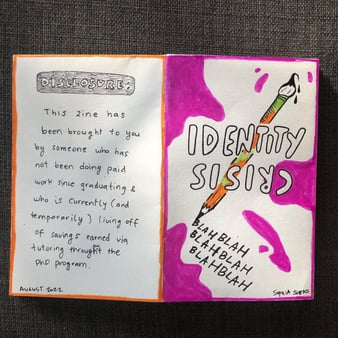 DISCLOSURE:
This zine has
been brought to you
by someone who has
not been doing paid
work since graduating &
who is currently (and
temporarily) living off
of savings earned via
tutoring throught the
PhD program.
AUGUST 2022
IDENTITY
CRISIS
BLAH BLAH
BLAHBLAH
BLAHBLAH
BLAHBLAH